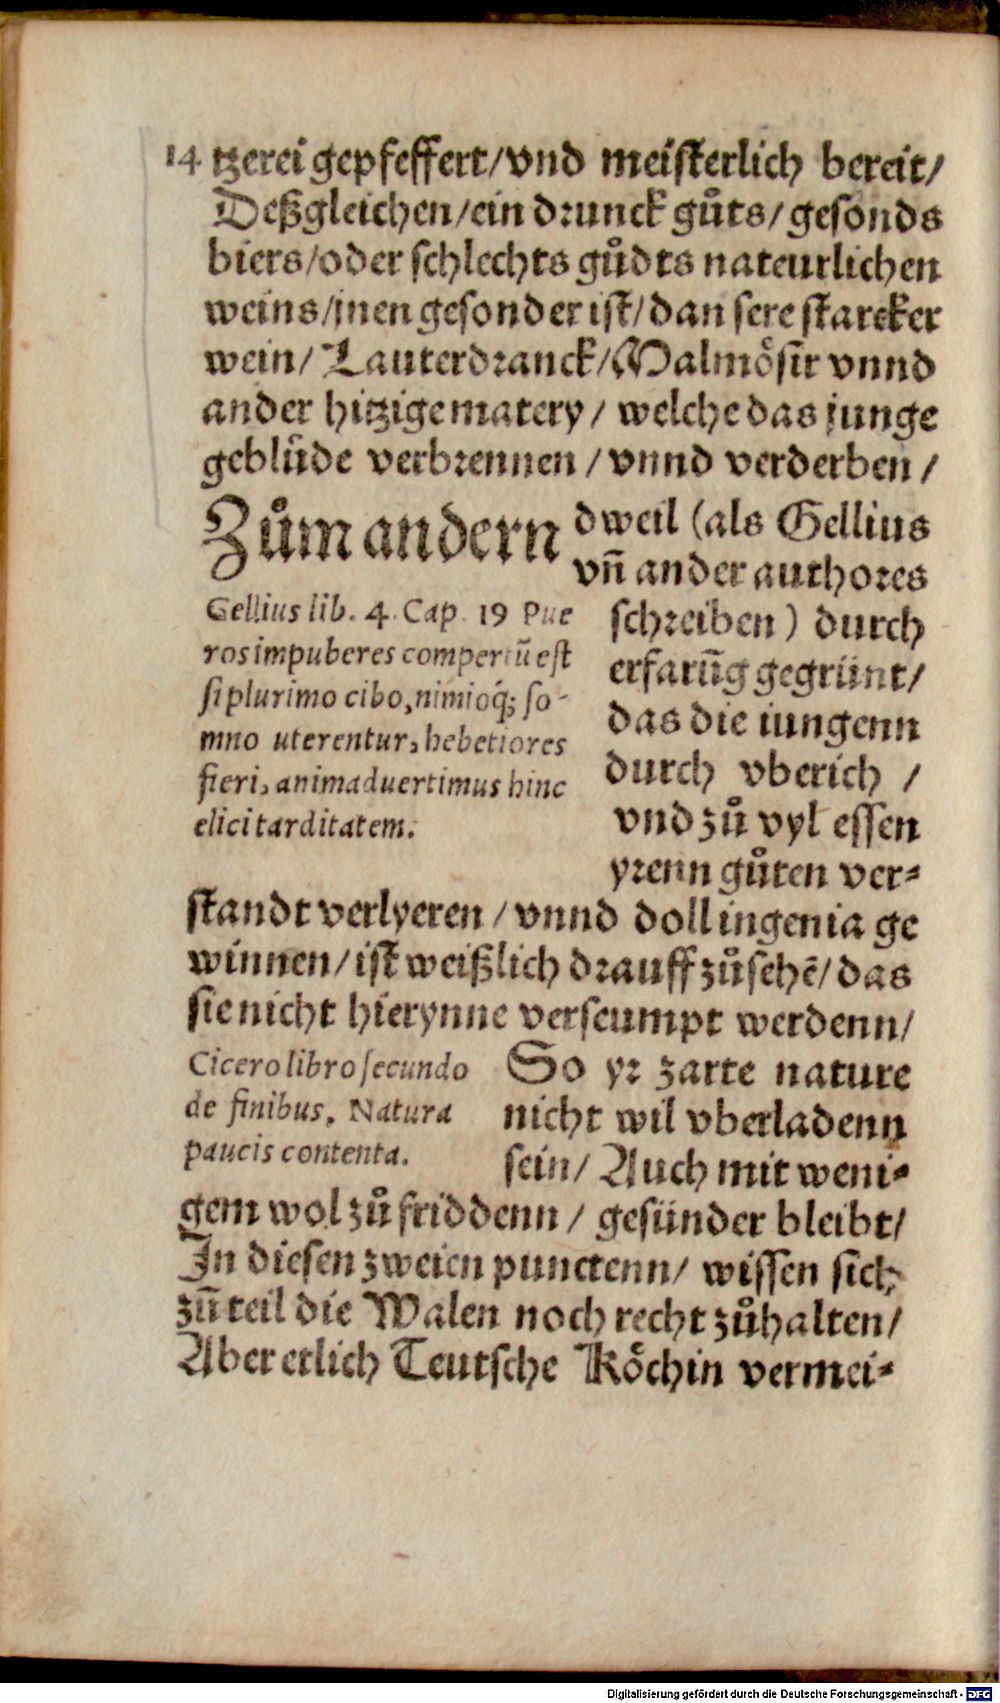 14 tzerei gepfeffert/ vnd meisterlich bereit/
Deßgleichen/ein drunck gůts/ gesonds
biers/oder schlechts gůdts nateurlichen
weins/jnen gesonder ist/dan sere starcker
wein/ Lauterdranck/Malmôsir vnnd
ander hitzige matery/ welche das junge
geblůde verbrennen/ vnnd verderben/
Zům andern dweil (als Gellius
vñ ander authores
schreiben) durch
erfarũg gegrünt/
das die iungenn
durch vberich /
vnd zů vyl essen
yrenn gůten ver⸗
Gellius lib. 4. Cap. 19 Pue
ros impuberes compertũ est
si plurimo cibo, nimioq́; so-
mno uterentur, hebetiores
fieri, animaduertimus hinc
elici tarditatem.
standt verlyeren / vnnd doll ingenia ge
winnen/ist weißlich drauff zůsehẽ/ das
sie nicht hierynne verseumpt werdenn/
Cicero libro secundo
de finibus. Natura
paucis contenta.
So yr zarte nature
nicht wil vberladenn
sein/ Auch mit weni⸗
gem wol zů friddenn/ gesünder bleibt/
In diesen zweien punctenn/ wissen sich
zũ teil die Walen noch recht zůhalten/
Aber etlich Teutsche Kôchin vermei⸗
Digitalisierung gefördert durch die Deutsche Forschungsgemeinschaft - DFG